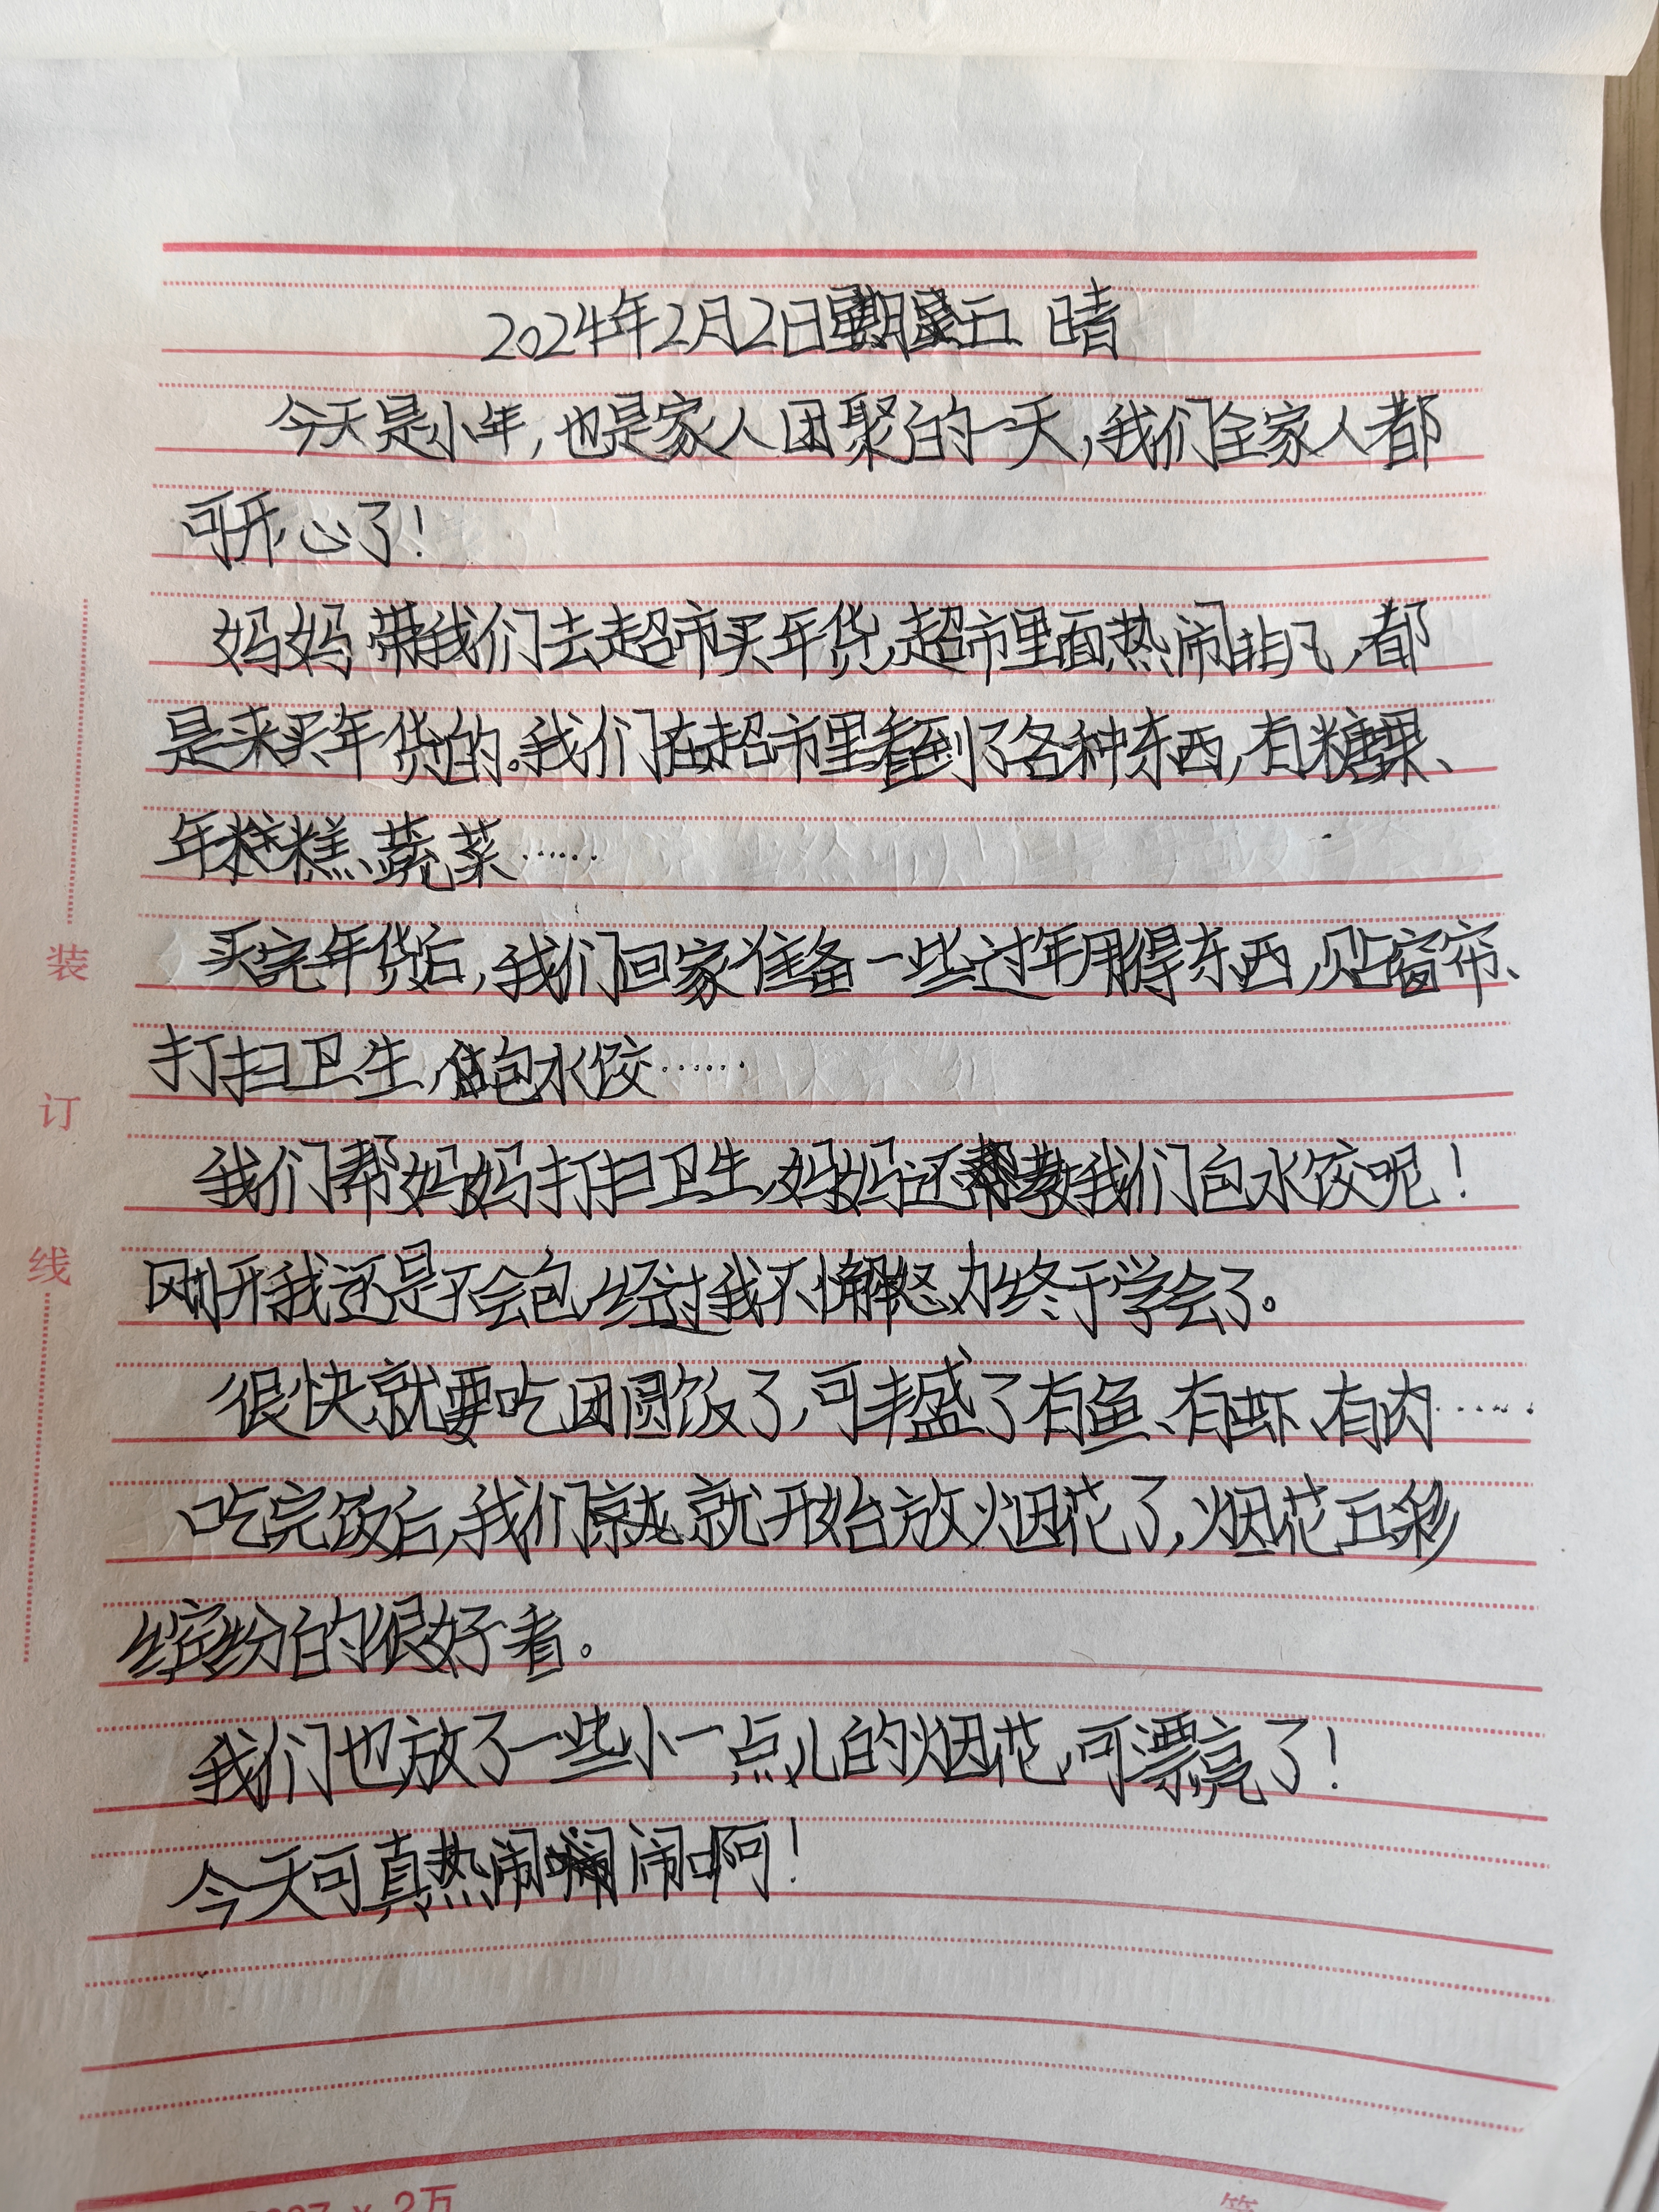 2024年2月2日星期五 晴
今天是小年,也是家人团聚的一天,我们全家人都
可开心了!
妈妈带我们去超市买年货,超市里面热闹非凡,都
是来买年货的。我们在超市里看到了各种东西,有糖果、
年糕、蔬菜……
买完年货后,我们回家准备一些过年用得东西,贴窗帘、
打扫卫生,包水饺……
我们帮妈妈打扫卫生,妈妈还教我们包水饺呢!
刚开我还是不会包,经过我不懈怒力终于学会了。
很快就要吃团圆饭了,可丰盛了有鱼、有虾、有肉……
吃完饭后,我们就开始放烟花了,烟花五彩
缤纷的很好看。
我们也放了一些小一点儿的烟花,可漂亮了!
今天可真热闹闹啊!
装
订
线
× 2万
第